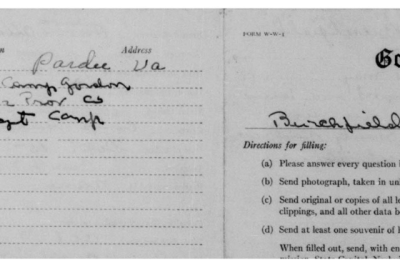 on Address
Pardee Va
Camp Gordon
Prov Co
Camp
FORM W-W-1.
Go
Burchfield
Directions for filling:
(a) Please answer every question i
(b) Send photograph, taken in uni
(c) Send original or copies of all le
clippings, and all other data b
(d) Send at least one souvenir of h
When filled out, send, with en